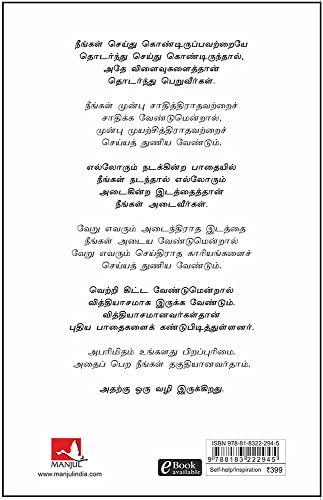 நீங்கள் செய்து கொண்டிருப்பவற்றையே
தொடர்ந்து செய்து கொண்டிருந்தால்,
அதே விளைவுகளைத்தான்
தொடர்ந்து பெறுவீர்கள்.
நீங்கள் முன்பு சாதித்திராதவற்றைச்
சாதிக்க வேண்டுமென்றால்,
முன்பு முயற்சித்திராதவற்றைச்
செய்யத் துணிய வேண்டும்.
எல்லோரும் நடக்கின்ற பாதையில்
நீங்கள் நடந்தால் எல்லோரும்
அடைகின்ற இடத்தைத்தான்
நீங்கள் அடைவீர்கள்.
வேறு எவரும் அடைந்திராத இடத்தை
நீங்கள் அடைய வேண்டுமென்றால்
வேறு எவரும் செய்திராத காரியங்களைச்
செய்யத் துணிய வேண்டும்.
வெற்றி கிட்ட வேண்டுமென்றால்
வித்தியாசமாக இருக்க வேண்டும்.
வித்தியாசமானவர்கள்தான்
புதிய பாதைகளைக் கண்டுபிடித்துள்ளனர்.
அபரிமிதம் உங்களது பிறப்புரிமை.
அதைப் பெற நீங்கள் தகுதியானவர்தாம்.
அதற்கு ஒரு வழி இருக்கிறது.
MANJUL
manjulindia.com
eBook
available
ISBN 978-81-8322-294-5
9 788183 222945
Self-help/Inspiration ₹399